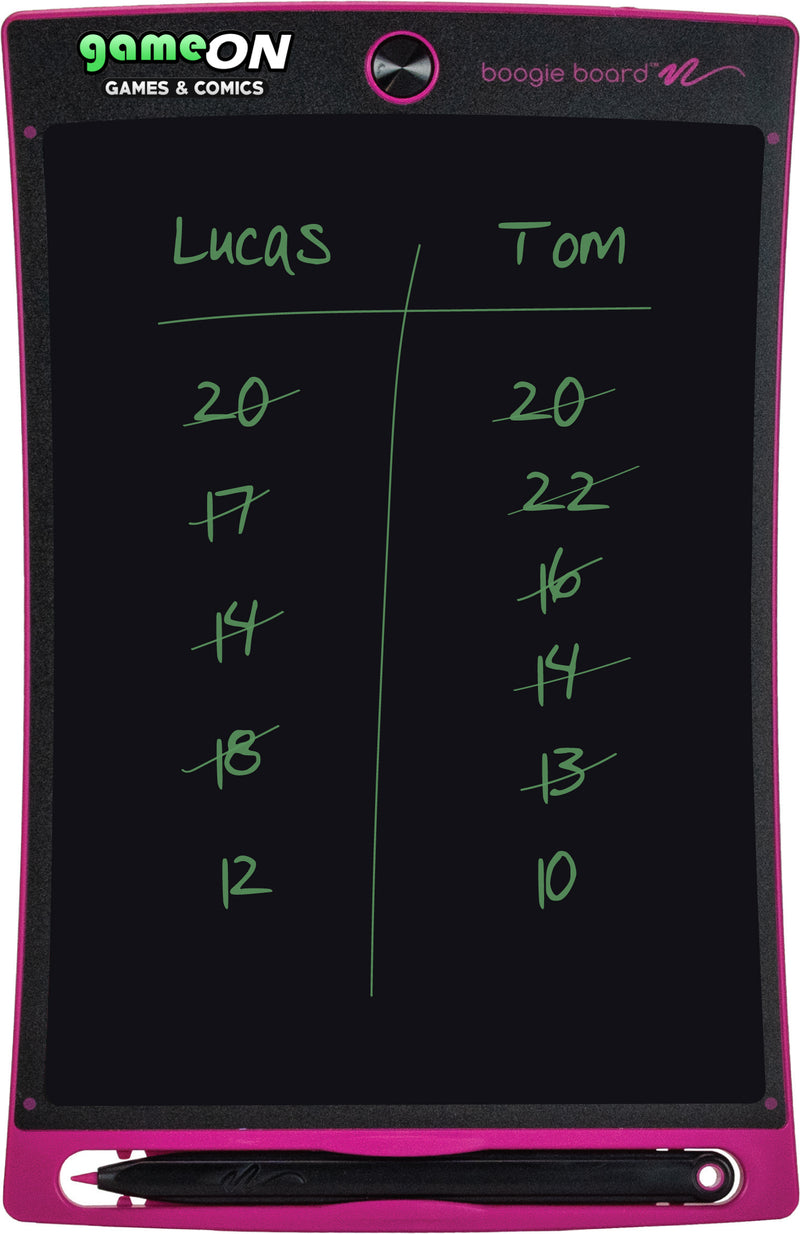 gameON
GAMES & COMICS
boogie board™
Lucas Tom
20 20
17 22
16
14 14
18 13
12 10